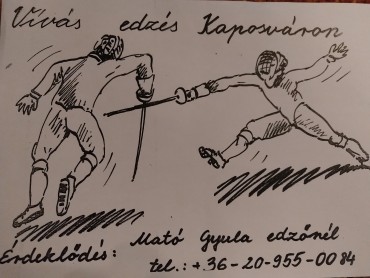 Vívás edzés Kaposváron
Érdeklődés: Mató Gyula edzőnél
tel.: +36-20-955-0084